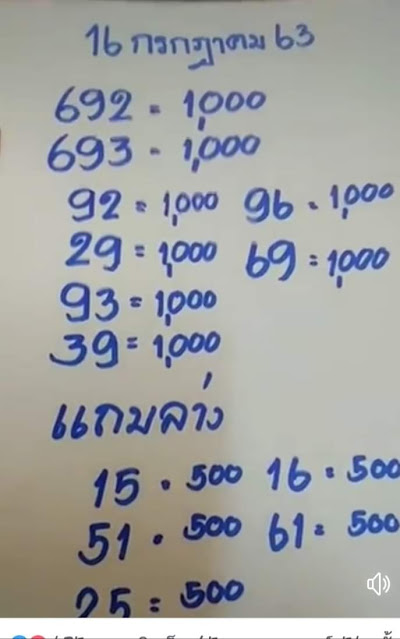 16 กรกฎาคม 63
692 = 1,000
693 - 1,000
92 = 1,000 96 = 1,000
29 = 1,000 69 = 1,000
93 = 1,000
39 = 1,000
แถมล่าง
15 • 500 16 = 500
51 • 500 61 = 500
25 = 500